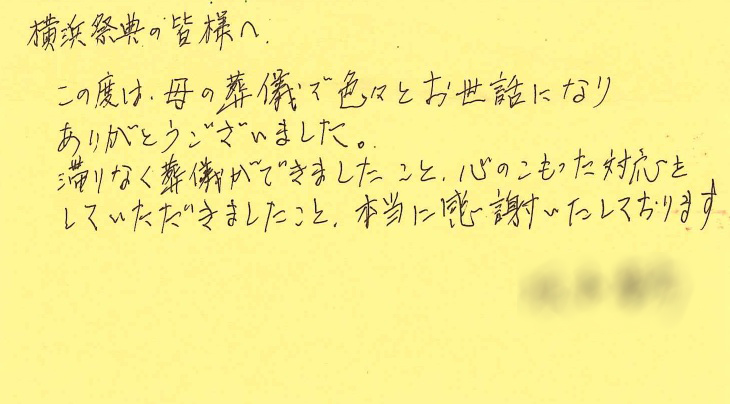 横浜祭典の皆様へ.
この度は、母の葬儀で色々とお世話になり
ありがとうございました。
滞りなく葬儀ができましたこと、心のこもった対応を
していただきましたこと、本当に感謝いたしております